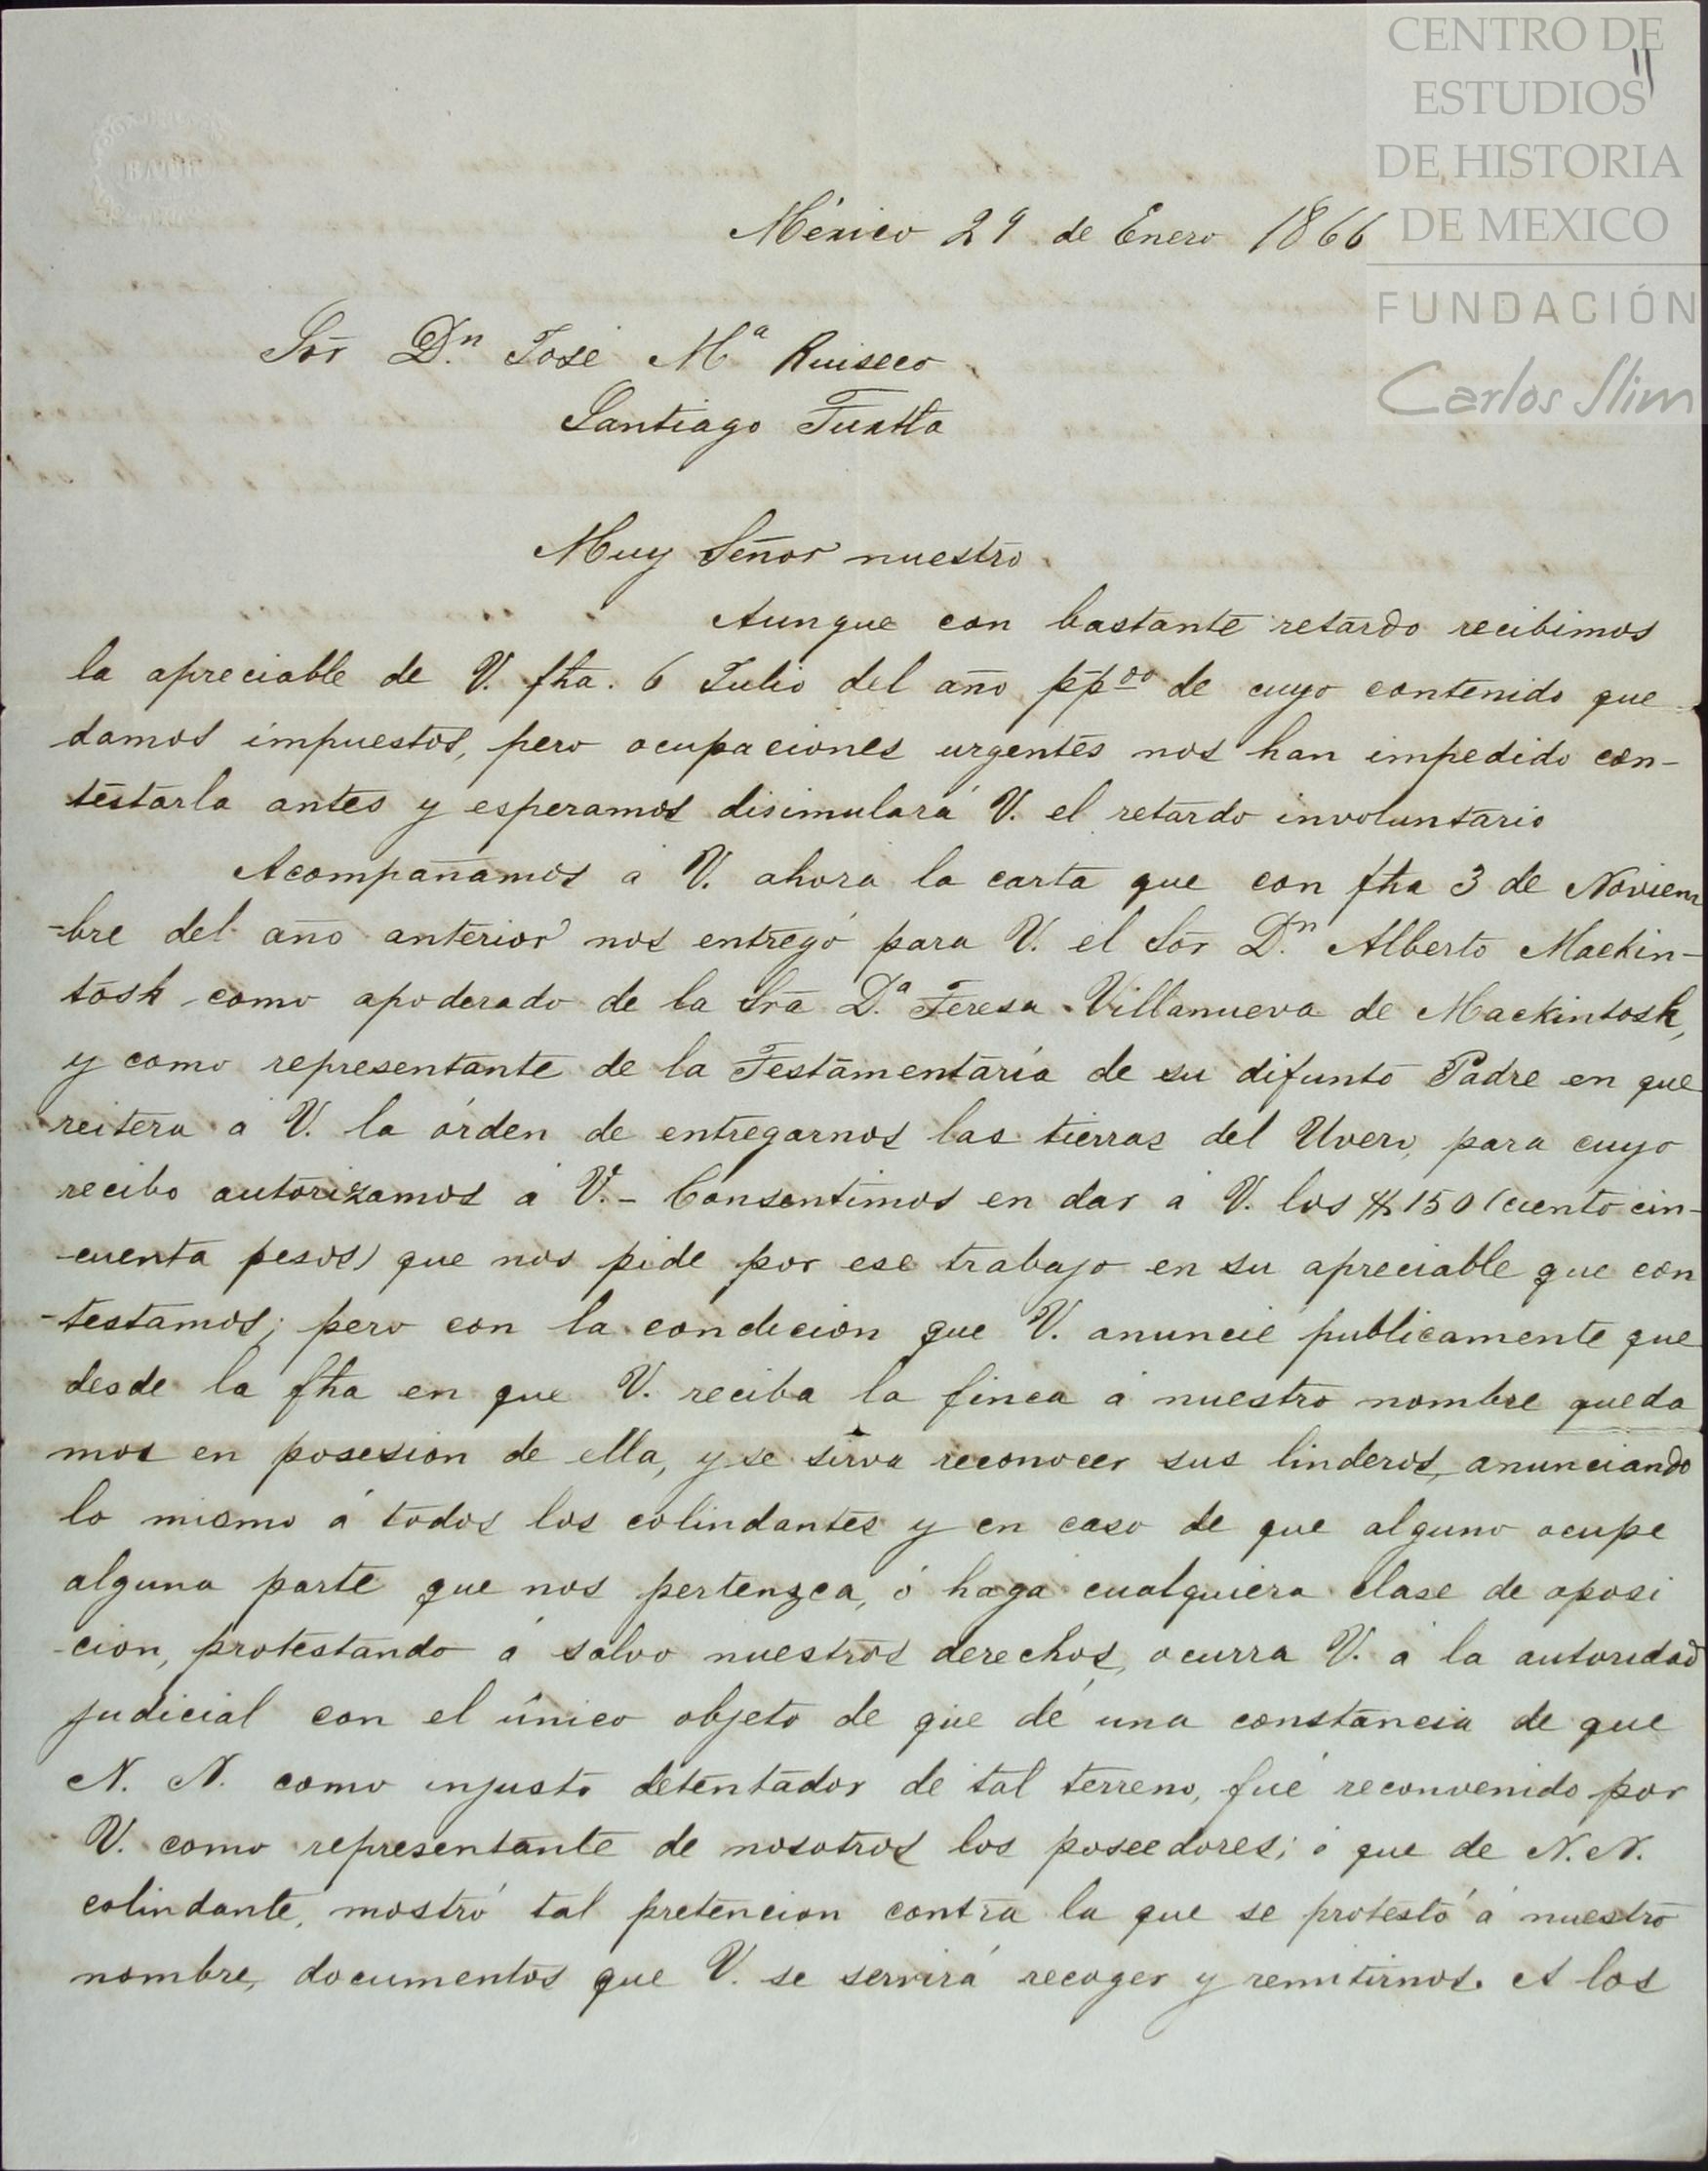 CENTRO DE
ESTUDIOS
DE HISTORIA
DE MEXICO
FUNDACIÓN
Carlos Slim
11
BATH
México 29 de Enero 1866
Sōr Dn. José Ma Ruiseco
Santiago Tuxtla
Muy Señor nuestro
Aunque con bastante retardo recibimos
la apreciable de V. fha. 6 Julio del año ppdo de cuyo contenido que
damos impuestos, pero ocupaciones urgentes nos han impedido con-
testarla antes y esperamos disimulará V. el retardo involuntario
Acompañamos á V. ahora la carta que con fha 3 de Noviem
-bre del año anterior nos entregó para V. el Sōr Dn. Alberto Mackin-
tosh como apoderado de la Sra Da. Teresa Villanueva de Mackintosh,
y como representante de la Testamentaría de su difunto Padre en que
reitera á V. la órden de entregarnos las tierras del Uvero, para cuyo
recibo autorizamos á V. - Consentimos en dar á V. los $150 (ciento cin-
-cuenta pesos) que nos pide por ese trabajo en su apreciable que con
-testamos; pero con la condicion que V. anuncie publicamente que
desde la fha en que V. reciba la finca á nuestro nombre queda
mos en posesion de ella, y se sirva reconocer sus linderos, anunciando
lo mismo á todos los colindantes y en caso de que alguno ocupe
alguna parte que nos pertenzca, ó haga cualquiera clase de oposi
-cion, protestando á salvo nuestros derechos, ocurra V. á la autoridad
judicial con el único objeto de que dé una constancia de que
N. N. como injusto detentador de tal terreno, fué reconvenido por
V. como representante de nosotros los poseedores; ó que de N. N.
colindante, mostró tal pretencion contra la que se protestó á nuestro
nombre, documentos que V. se servirá recoger y remitirnos. A los